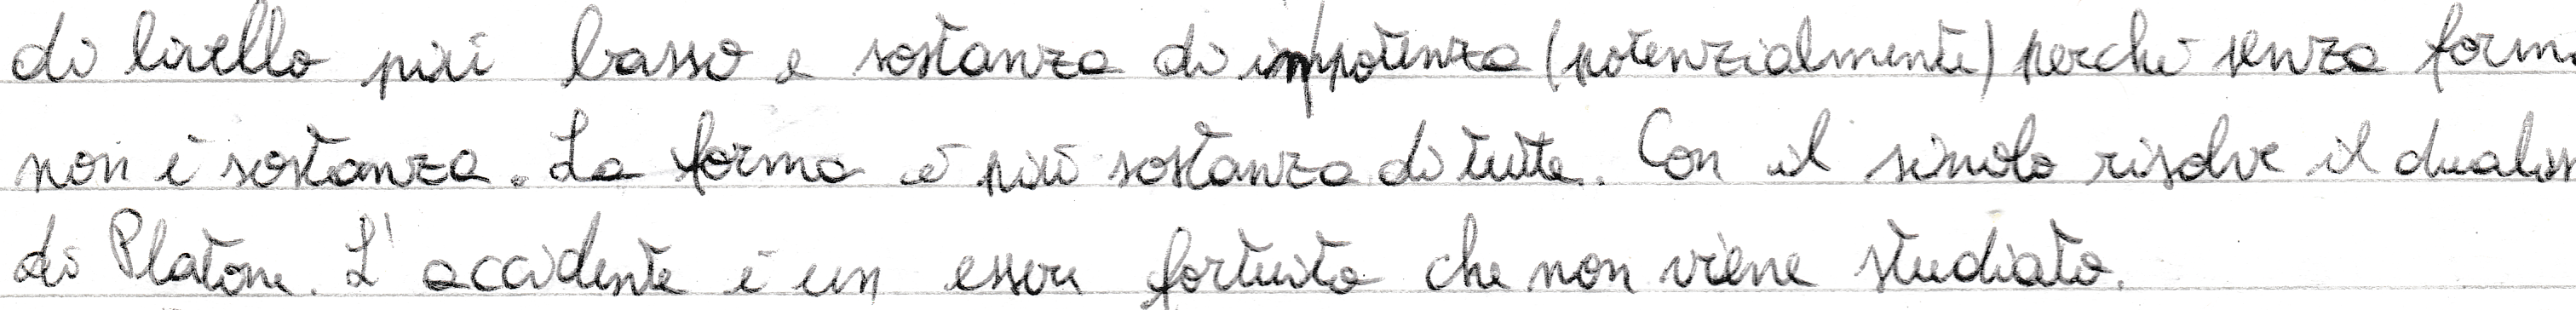 di livello più basso e sostanza di impotenza (potenzialmente) perché senza form
non è sostanza. La forma è più sostanza di tutte. Con il sinolo risolve il dualis
di Platone. L'accidente è un essere fortuito che non viene studiato.